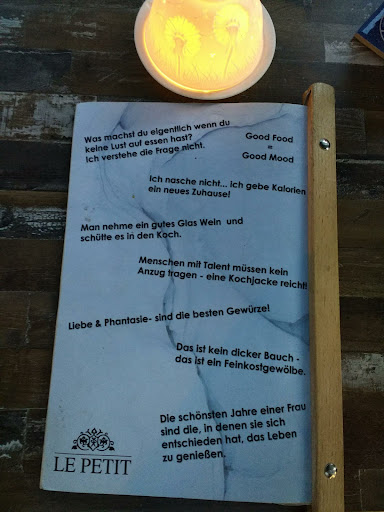 Was machst du eigentlich wenn du
keine Lust auf essen hast?
Ich verstehe die Frage nicht.
Good Food
=
Good Mood
Ich nasche nicht... Ich gebe Kalorien
ein neues Zuhause!
Man nehme ein gutes Glas Wein und
schütte es in den Koch.
Menschen mit Talent müssen kein
Anzug tragen - eine Kochjacke reicht!
Liebe & Phantasie- sind die besten Gewürze!
Das ist kein dicker Bauch -
das ist ein Feinkostgewölbe.
Die schönsten Jahre einer Frau
sind die, in denen sie sich
entschieden hat, das Leben
zu genießen.
LE PETIT